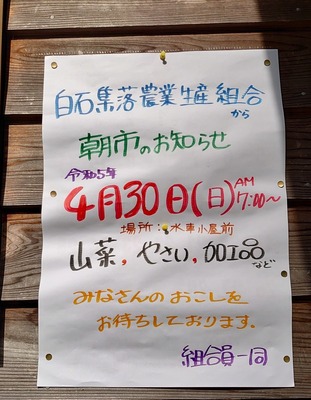 白石集落農業生産組合
から
朝市のお知らせ
令和5年
4月30日(日)AM7:00〜
場所:水車小屋前
山菜,やさい,加工品など
みなさんのおこしを
お待ちしております。
組合員一同